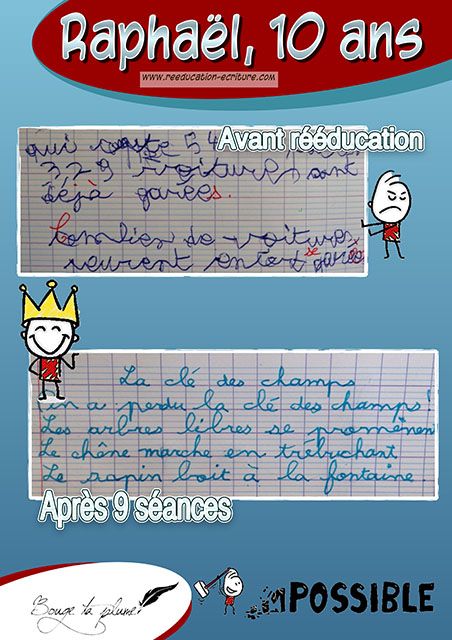 Raphaël, 10 ans
www.reeducation-ecriture.com
Avant rééducation
qui compte 54
329 voitures sont
déjà garées.
Combien de voitures
peuvent enter se garer
La clé des champs
a perdu la clé des champs!
Les arbres libres se promènent
Le chêne marche en trébuchant
Le sapin boit à la fontaine.
Après 9 séances
Bouge ta plume
imPOSSIBLE